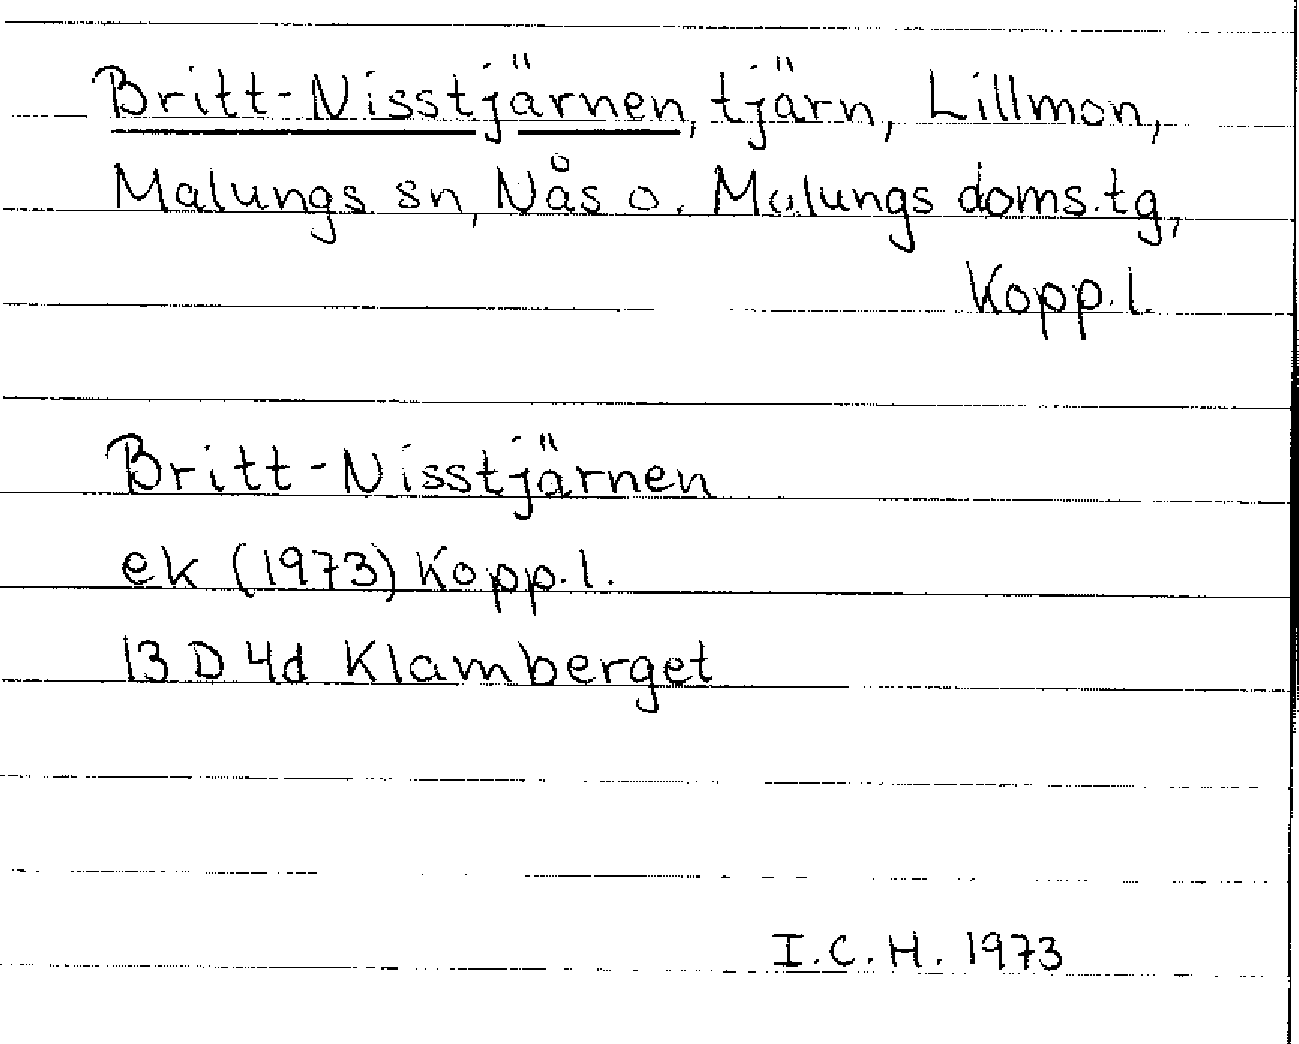 Britt-Nisstjärnen, tjärn, Lillmon,
Malungs sn, Nås o. Malungs doms.tg,
Kopp.l.
Britt-Nisstjärnen
ek (1973) Kopp.l.
13 D 4d Klamberget
I.C.H. 1973